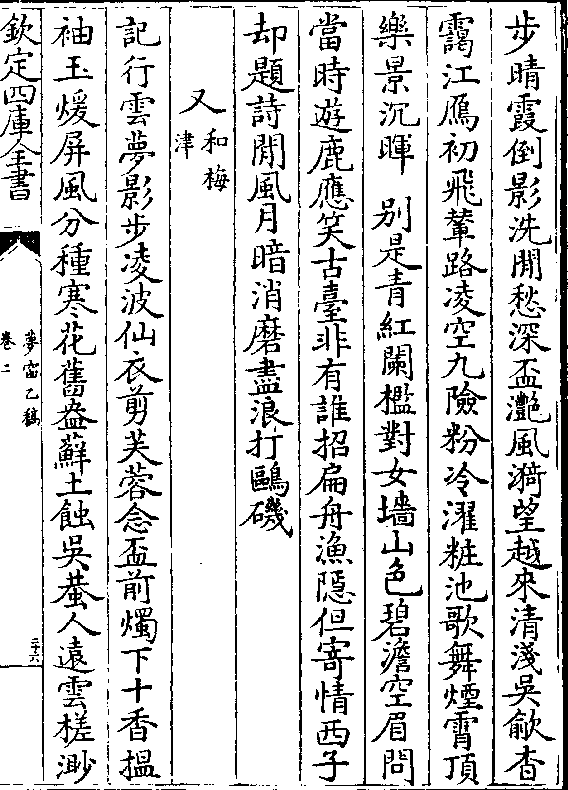 步晴霞倒影洗閒愁深盃灔風漪望越來清淺吳歈杳
靄江鴈初飛輦路凌空九險粉冷濯粧池歌舞煙霄頂
樂景沉暉　別是青紅闌檻對女墻山色碧澹空眉問
當時遊鹿應笑古臺非有誰招扁舟漁隱但寄情西子
却題詩閒風月暗消磨盡浪打鷗磯
又和梅津
記行雲夢影步凌波仙衣剪芙蓉念盃前燭下十香搵
袖玉煖屏風分種寒花舊盎蘚土蝕吳蛩人遠雲槎渺
欽定四庫全書
夢窗乙稿
卷二
二十六